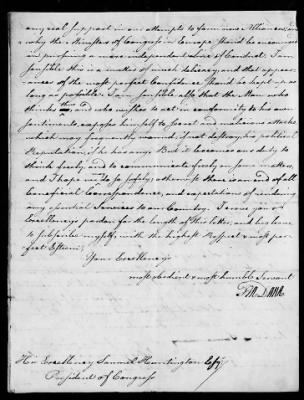 any real support in our attempts to form new Alliances, and
why the Ministers of Congress in Europe should be encouraged
in pursuing a more independent Line of Conduct. I am
sensible this is a matter of much delicacy and that appear-
ances of the most perfect Confidence should be kept up as
long as possible. I am sensible also that the Man who
thinks thus and who wishes to act in conformity to his own
sentiments, exposes himself to secret and malicious attacks
which may for wound, if not destroy his political
Reputation if he has any. But it becomes our duty to
think freely, and to communicate freely on such matters,
and I hope to do so safely, otherwise there is an end of all
beneficial Correspondence, and expectations of rendering
any essential Services to our Country. I crave your
Excellency's pardon for the length of this letter, and beg leave
to subscribe myself, with the highest Respect & most per-
fect Esteem,
Your Excellency's
most obedient & most humble Servant
FRA DANA
His Excellency Samuel Huntington Esqr
President of Congress